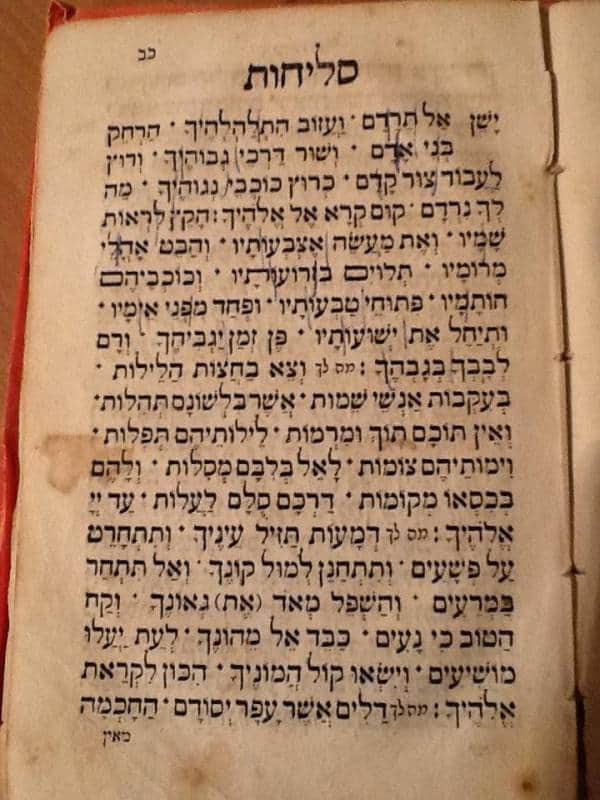 כב
סליחות
יָשֵׁן אַל תֵּרָדַם · וַעֲזוֹב הִתְלַהְלְהֶיךָ · הַרְחֵק
בְּנֵי אָדָם · וְשׁוּר דַּרְכֵי גְבוֹהֶיךָ · וְרוּץ
לַעֲבוֹד צוּר קֶדֶם · כְּרוּץ כּוֹכְבֵי נְגוֹהֶיךָ · מַה
לְּךָ נִרְדָּם · קוּם קְרָא אֶל אֱלֹהֶיךָ : הָקֵץ לִרְאוֹת
שָׁמָיו · וְאֶת מַעֲשֵׂה אֶצְבְּעוֹתָיו · וְהַבֵּט אָהֳלֵי
מְרוֹמָיו · תְּלוּיִם בִּזְרוֹעוֹתָיו · וְכוֹכָבֵיהֶם
חוֹתָמָיו · פִּתּוּחֵי טַבְּעוֹתָיו · וּפְחַד מִפְּנֵי אֵימָיו ·
וּתְיַחֵל אֶת יְשׁוּעוֹתָיו · פֶּן זְמַן יַגְבִּיהֶךָ · וְרָם
לְבָבְךָ בְּגָבְהֶךָ : מה לך וְצֵא בַּחֲצוֹת הַלֵּילוֹת ·
בְּעִקְבוֹת אַנְשֵׁי שֵׁמוֹת · אֲשֶׁר בִּלְשׁוֹנָם תְּהִלּוֹת ·
וְאֵין תּוֹכָם תּוֹךְ וּמִרְמוֹת · לֵילוֹתֵיהֶם תְּפִלּוֹת ·
וִימוֹתֵיהֶם צוֹמוֹת · לָאֵל בְּלִבָּם מְסִלּוֹת · וְלָהֶם
בְּכִסְאוֹ מְקוֹמוֹת · דַּרְכָּם סֻלָּם לַעֲלוֹת · עַד יְיָ
אֱלֹהֶיךָ : מה לך דְּמָעוֹת תַּזִּיל עֵינֶיךָ · וְתִתְחָרֵט
עַל פְּשָׁעִים · וְתִתְחַנֵּן לְמוּל קוֹנֶךָ · וְאַל תִּתְחַר
בַּמְּרֵעִים · וְהַשְׁפֵּל מְאֹד (את) גְּאוֹנֶךָ · וְקַח
הַטּוֹב כִּי נָעִים · כַּבֵּד אֵל מֵהוֹנֶךָ · לְעֵת יַעֲלוּ
מוֹשִׁיעִים · וְיִשְׂאוּ קוֹל הֲמוֹנֶיךָ · הִכּוֹן לִקְרַאת
אֱלֹהֶיךָ : מה לך דַּלִּים אֲשֶׁר עָפָר יְסוֹדָם · הַחָכְמָה
מאין